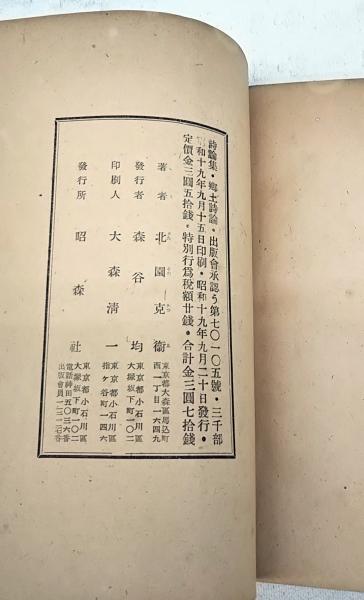 詩論集・鄕土詩論・出版會承認う第七〇一〇五號・三千部
昭和十九年九月十五日印刷・昭和十九年九月二十日發行・
定價金三圓五拾錢・特別行爲稅額廿錢・合計金三圓七拾錢
著者 北園克衞 東京都大森區馬込町西一丁目一六四九
發行者 森谷均 東京都小石川區大塚坂下町一〇二
印刷人 大森淸一 東京都小石川區指ケ谷町一四六
發行所 昭森社 東京都小石川區大塚坂下町一〇二